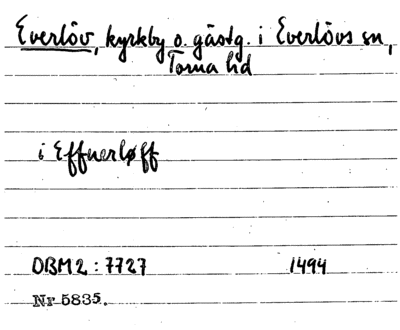 Everlöv, kyrkby o. gästg. i Everlövs sn,
Torna hd
i Effuerløff
DBM2: 7727 1494
Nr 5835.